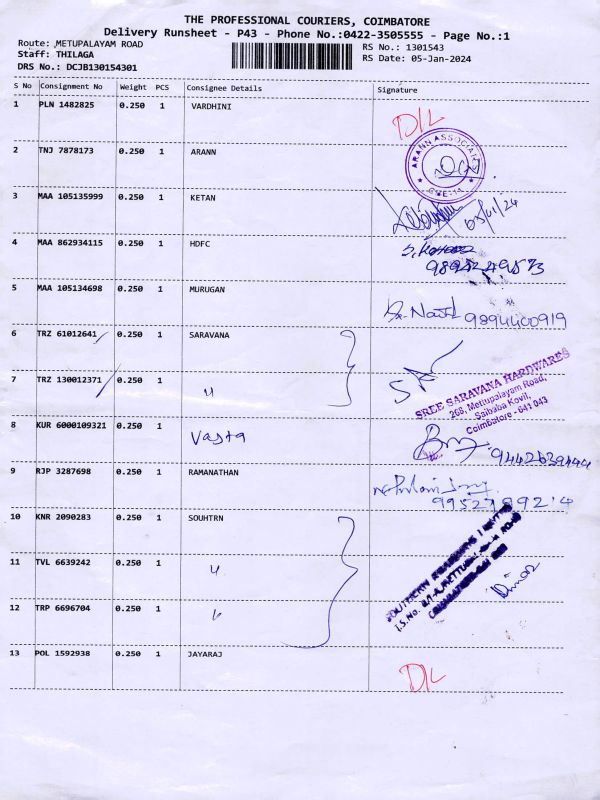 THE PROFESSIONAL COURIERS, COIMBATORE
Delivery Runsheet - P43 - Phone No.:0422-3505555 - Page No.:1
Route: METUPALAYAM ROAD
RS No.: 1301543
Staff: THILAGA
RS Date: 05-Jan-2024
DRS No.: DCJB130154301
S No Consignment No Weight PCS Consignee Details Signature
1 PLN 1482825 0.250 1 VARDHINI D/L
2 TNJ 7878173 0.250 1 ARANN
ARANN ASSOCIAT
CBE-11
3 MAA 105135999 0.250 1 KETAN 05/01/24
4 MAA 862934115 0.250 1 HDFC
5 MAA 105134698 0.250 1 MURUGAN 9894400919
6 TRZ 61012641 0.250 1 SARAVANA
7 TRZ 130012371 0.250 1 "
SREE SARAVANA HARDWARES
268, Mettupalayam Road,
Saibaba Kovil,
Coimbatore - 641 043
8 KUR 6000109321 0.250 1 Vasta
9 RJP 3287698 0.250 1 RAMANATHAN
10 KNR 2090283 0.250 1 SOUHTRN
11 TVL 6639242 0.250 1 "
12 TRP 6696704 0.250 1 "
13 POL 1592938 0.250 1 JAYARAJ D/L